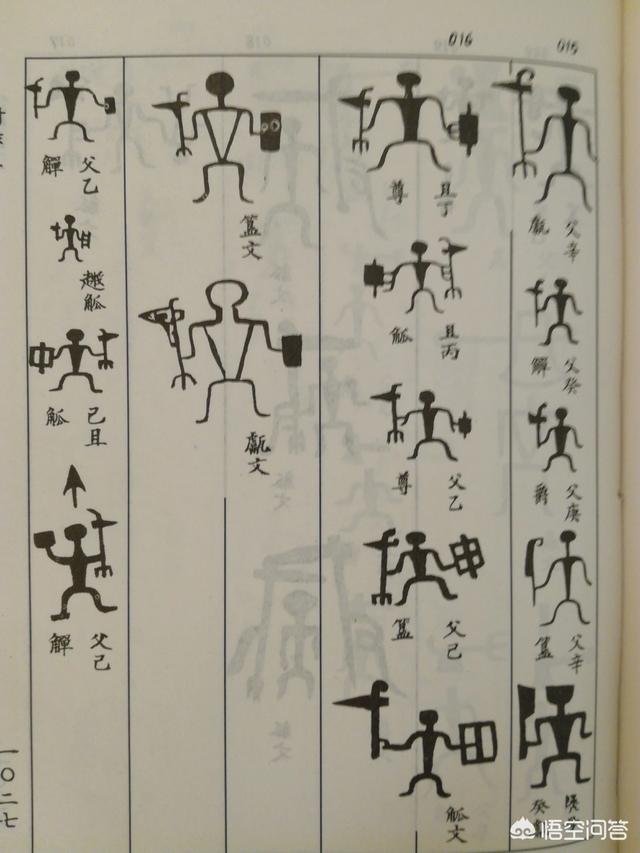 015
父辛
甗
父癸
觶
父庚
爵
父辛
簋
016
且丁
尊
且丙
觚
父乙
尊
父己
簋
觚文
018
簋文
甗文
017
父乙
觶
越觚
己且
觚
父己
觶
一〇二七
悟空问答